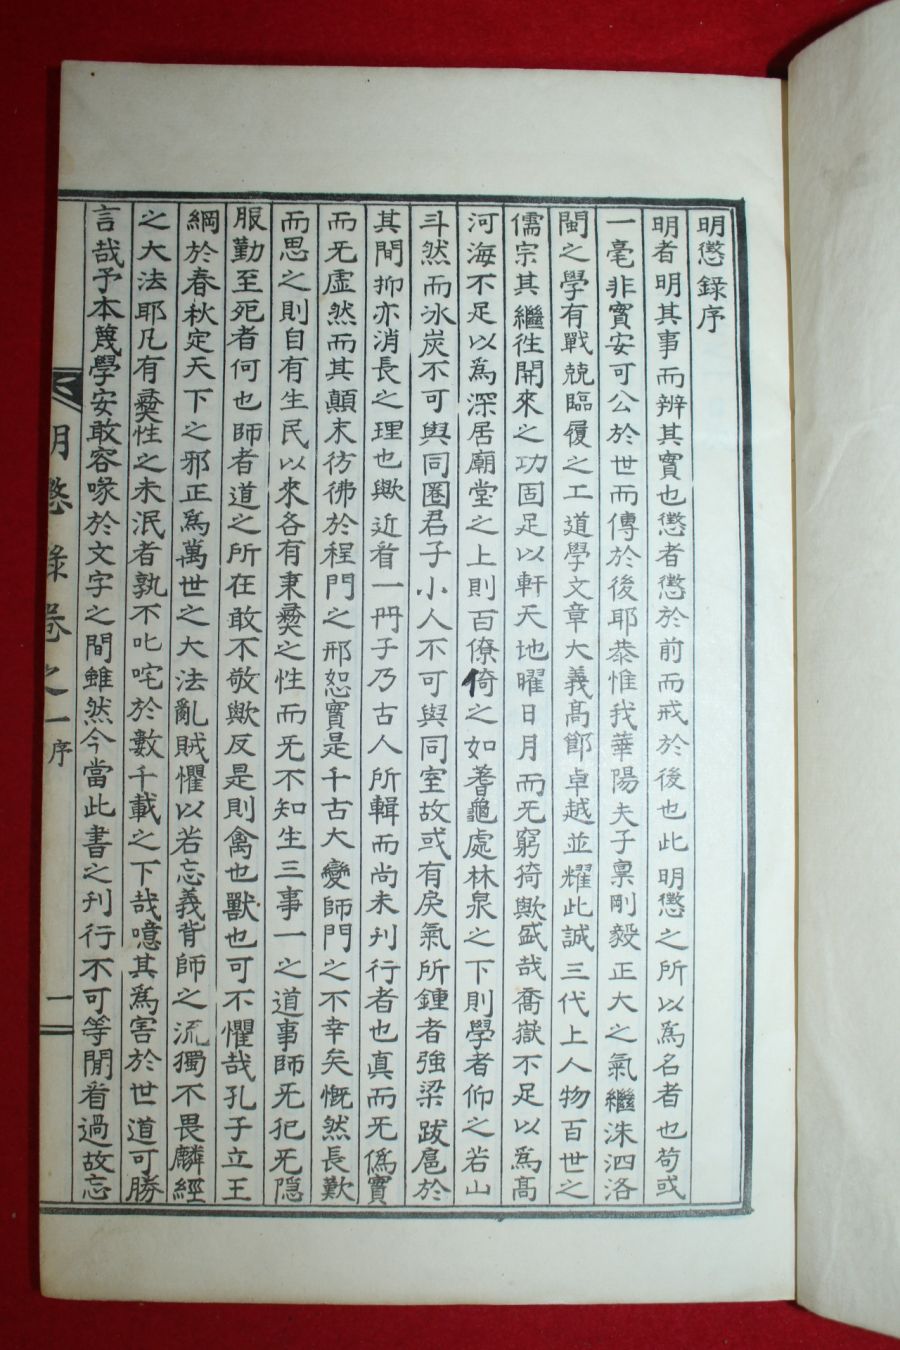 明懲錄序
明者明其事而辨其實也懲者懲於前而戒於後也此明懲之所以爲名者也苟或
一毫非實安可公於世而傳於後耶恭惟我華陽夫子稟剛毅正大之氣繼洙泗洛
閩之學有戰兢臨履之工道學文章大義高節卓越並耀此誠三代上人物百世之
儒宗其繼徃開來之功固足以軒天地曜日月而旡窮猗歟盛哉喬嶽不足以爲高
河海不足以爲深居廟堂之上則百僚倚之如蓍龜處林泉之下則學者仰之若山
斗然而冰炭不可與同圈君子小人不可與同室故或有戾氣所鍾者強梁跋扈於
其間抑亦消長之理也歟近看一冊子乃古人所輯而尚未刊行者也真而旡僞實
而旡虛然而其顛末彷彿於程門之邢恕實是千古大變師門之不幸矣慨然長歎
而思之則自有生民以來各有秉彜之性而旡不知生三事一之道事師旡犯旡隱
服勤至死者何也師者道之所在敢不敬歟反是則禽也獸也可不懼哉孔子立王
綱於春秋定天下之邪正爲萬世之大法亂賊懼以若忘義背師之流獨不畏麟經
之大法耶凡有彜性之未泯者孰不叱咤於數千載之下哉噫其爲害於世道可勝
言哉予本蔑學安敢容喙於文字之間雖然今當此書之刊行不可等閒看過故忘
明懲錄卷之一 序 一